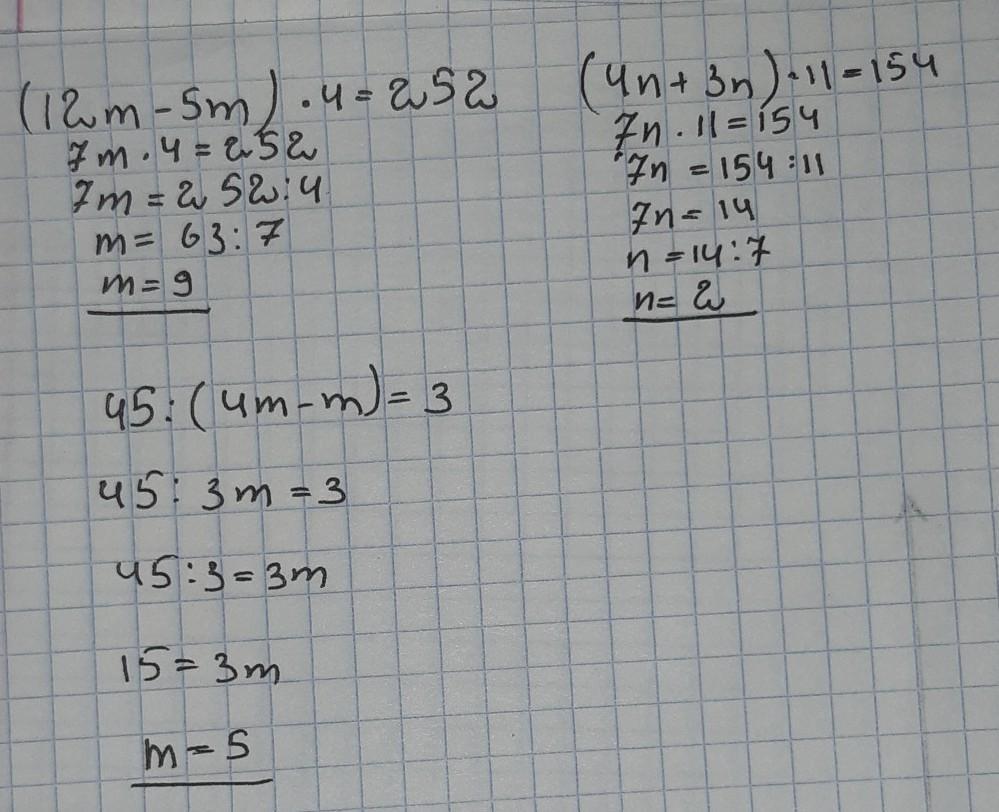 (12m-5m)·4=252
7m·4=252
7m=252:4
m=63:7
m=9
(4n+3n)·11=154
7n·11=154
7n=154:11
7n=14
n=14:7
n=2
45:(4m-m)=3
45:3m=3
45:3=3m
15=3m
m=5